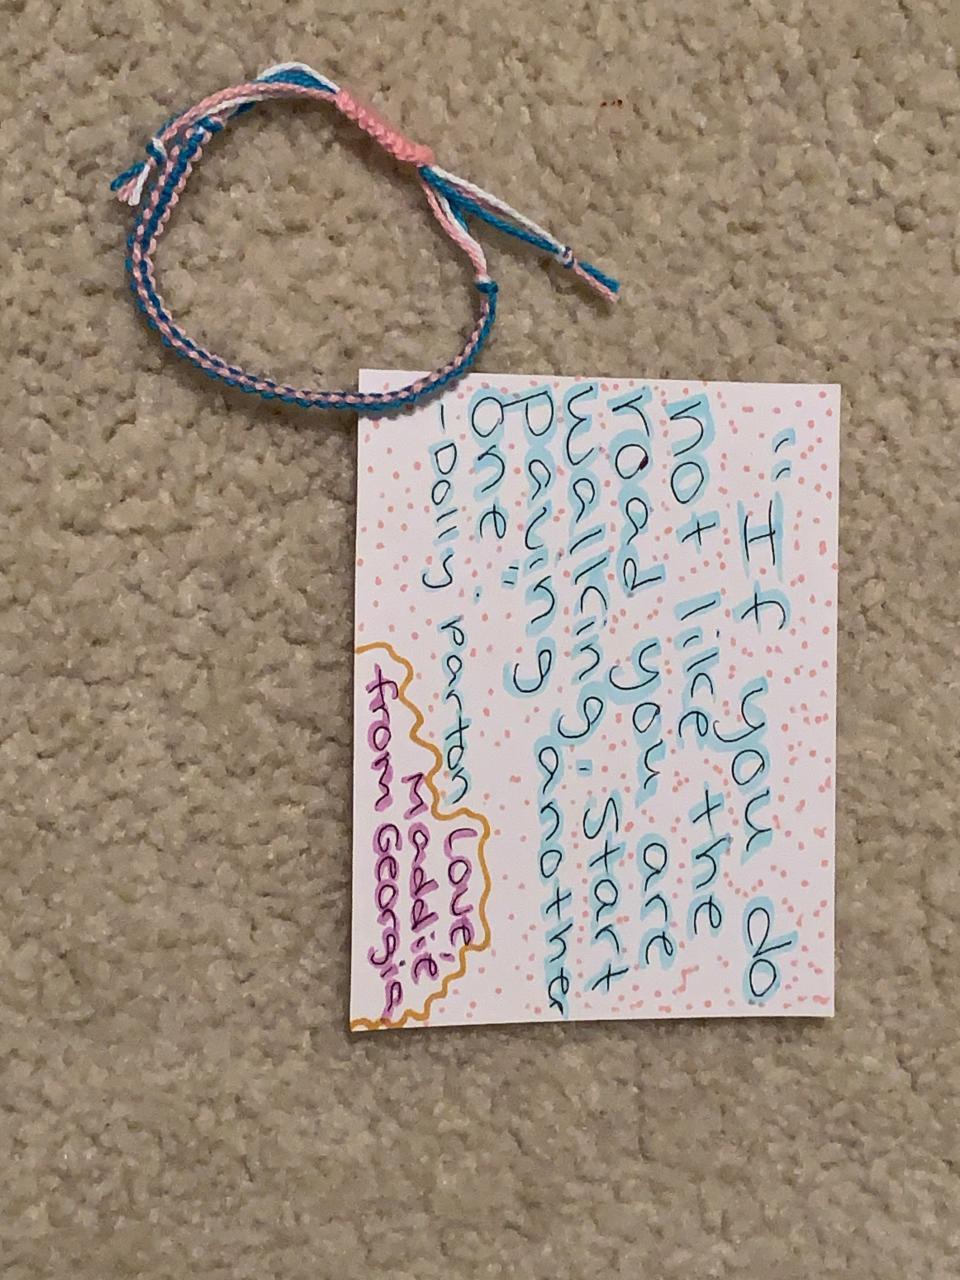 "If you do
not like the
road you are
walking. Start
paving another
one."
-Dolly. parton
Love,
Maddie
from Georgia